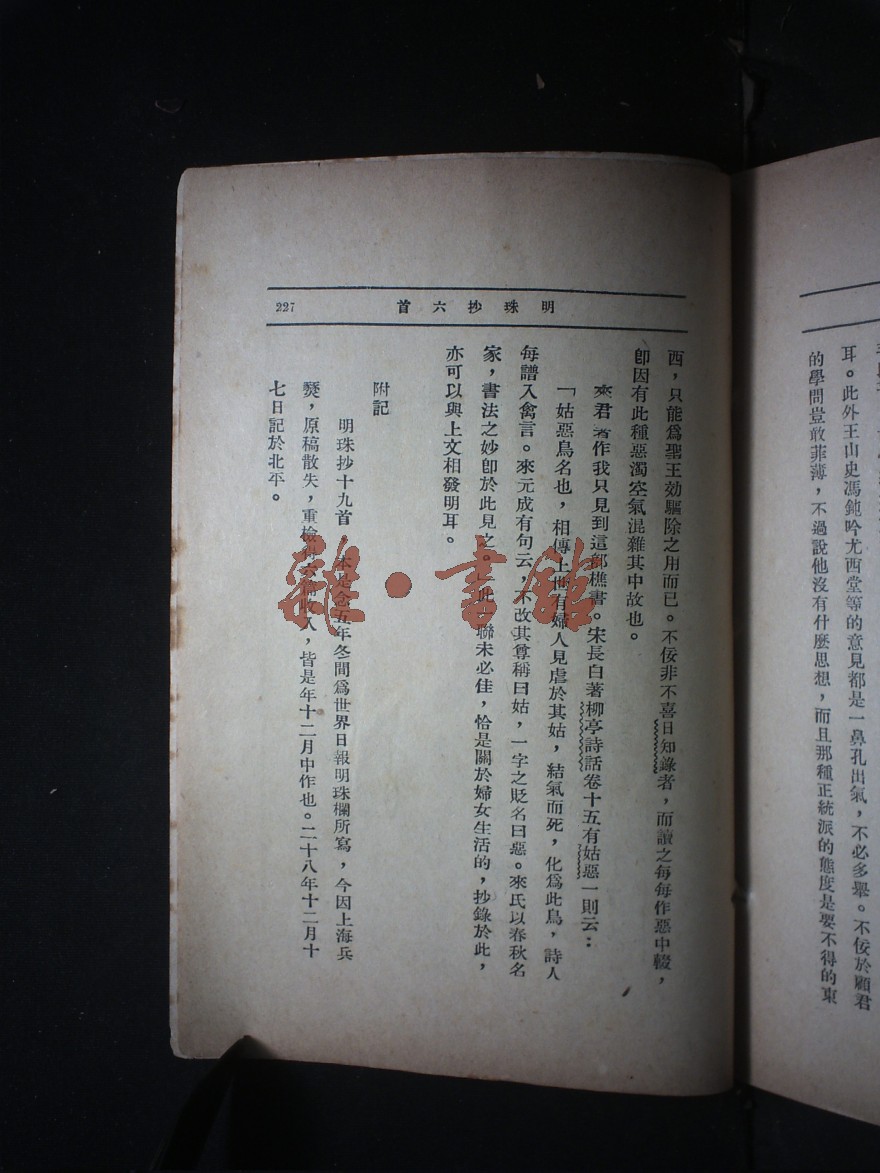 耳。此外王山史馮鈍吟尤西堂等的意見都是一鼻孔出氣，不必多舉。不佞於顧君
的學問豈敢菲薄，不過說他沒有什麼思想，而且那種正統派的態度是要不得的東
明珠抄六首
227
西，只能爲聖王効驅除之用而已。不佞非不喜日知錄者，而讀之每每作惡中輟，
卽因有此種惡濁空氣混雜其中故也。
來君著作我只見到這部樵書。宋長白著柳亭詩話卷十五有姑惡一則云：
「姑惡鳥名也，相傳上世有婦人見虐於其姑，結氣而死，化爲此鳥，詩人
每譜入禽言。來元成有句云，不改其尊稱曰姑，一字之貶名曰惡。來氏以春秋名
家，書法之妙卽於此見之。此聯未必佳，恰是關於婦女生活的，抄錄於此，
亦可以與上文相發明耳。
附記
明珠抄十九首 本是念五年冬間爲世界日報明珠欄所寫，今因上海兵
燹，原稿散失，重檢得六篇收入，皆是年十二月中作也。二十八年十二月十
七日記於北平。
雜·書館